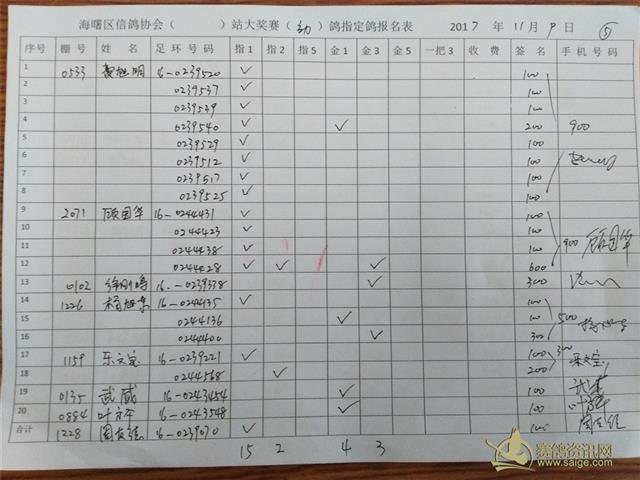 海曙区信鸽协会（ ）站大奖赛（幼）鸽指定鸽报名表 2017 年 11 月 9 日 ⑤
序号 棚号 姓名 足环号码 指1 指2 指5 金1 金2 金3 一把3 收费 签名 手机号码
1 0533 16-0239520 ✓ 100
2 0239537 ✓ 100
3 0239539 ✓ 100
4 0239540 ✓ ✓ 200 900
5 0239529 ✓ 100
6 0239512 ✓ 100
7 0239517 ✓ 100
8 0239525 ✓ 100
9 2071 顾国华 16-0244431 ✓ 100
10 0244423 ✓ 100
11 0244438 ✓ 100 900 顾国华
12 0244428 ✓ ✓ ✓ 600
13 0102 16-0239378 ✓ 300
14 1226 16-0244435 ✓ 100
15 0244136 ✓ 100 500
16 0244400 ✓ 300
17 1159 乐文宝 16-0239221 ✓ 100 300
18 0244568 ✓ 200 乐文宝
19 0135 武威 16-0243454 ✓ 100
20 0884 叶 16-0243548 ✓ 100
合计 1228 周 16-0239070 ✓ 100
15 2 4 3
赛鸽资讯网
www.saige.com